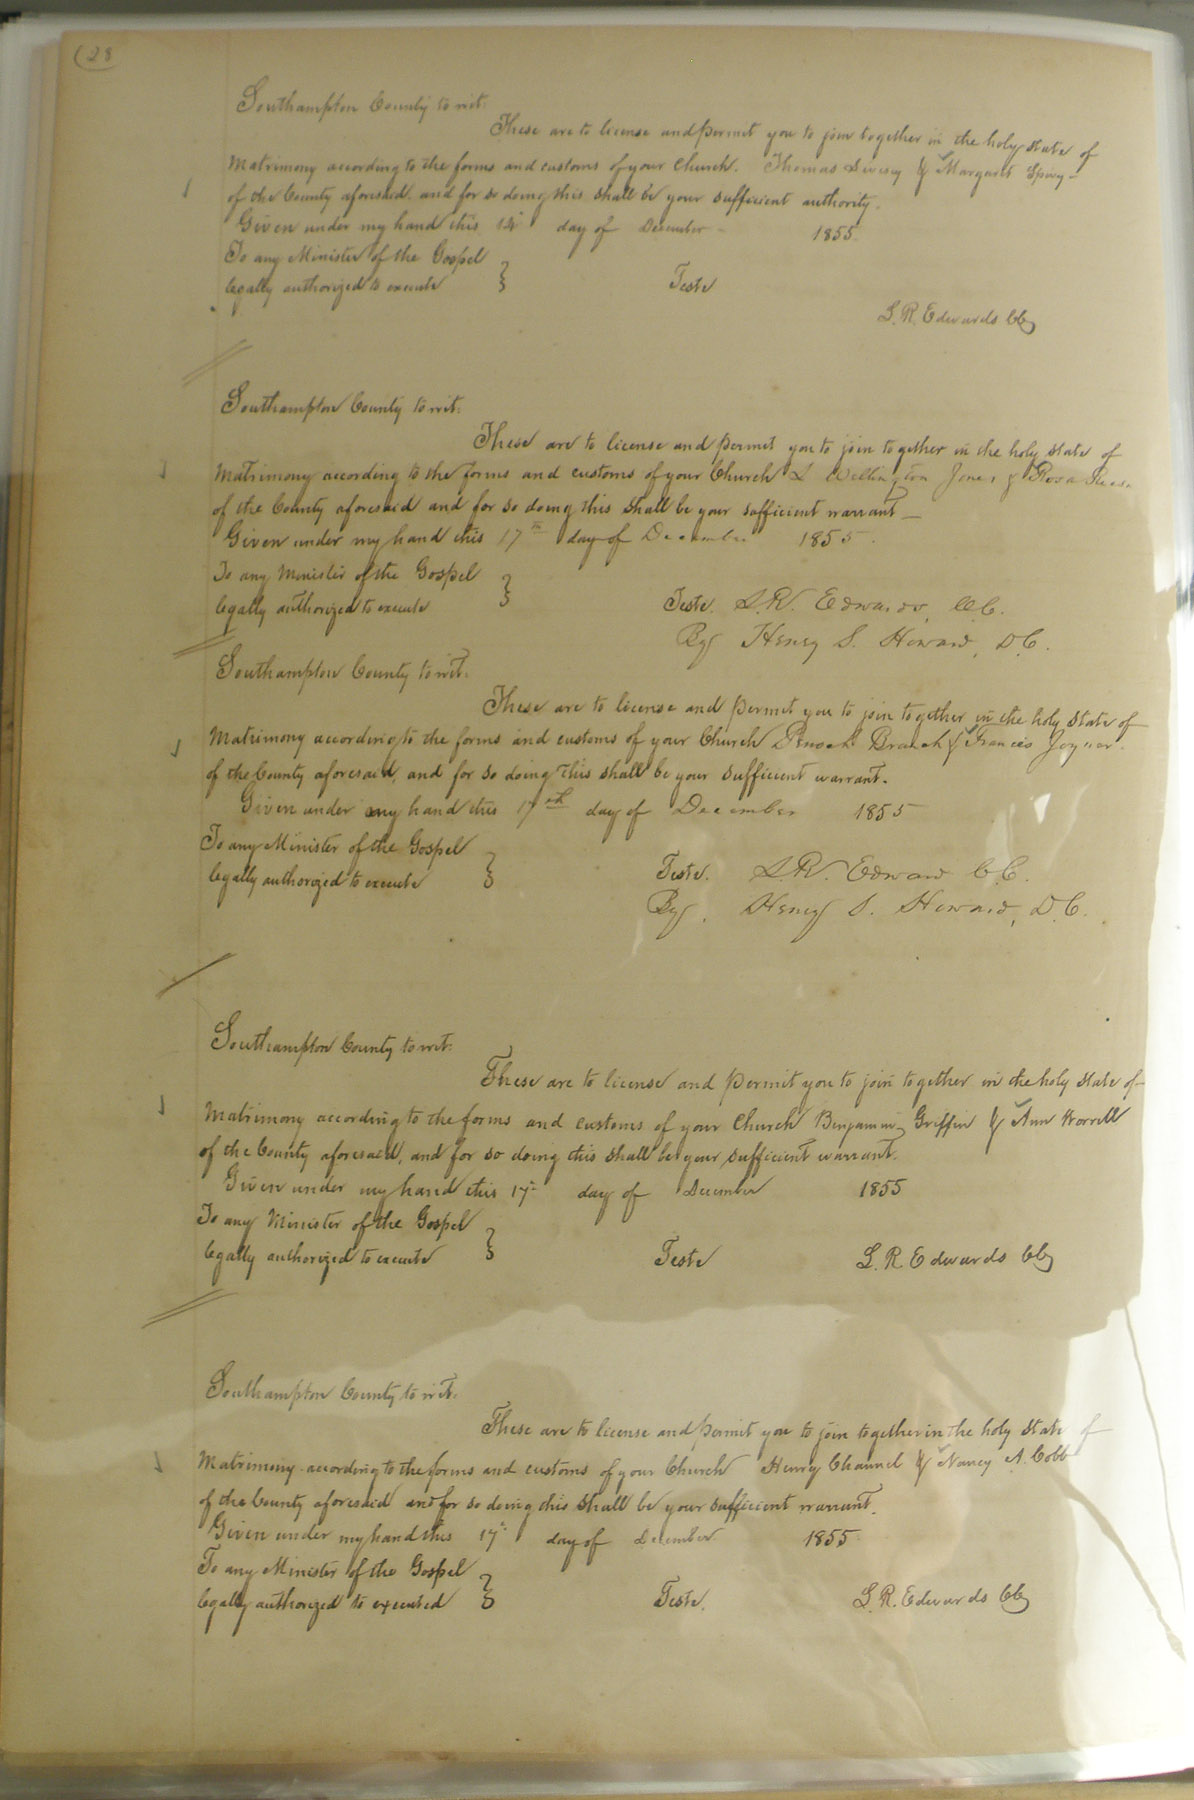 (28
Southampton County to wit:
These are to license and permit you to join together in the holy state of
Matrimony according to the forms and customs of your Church. Thomas Livesey & Margaret Spivy
of the County aforesaid. and for so doing this shall be your sufficient authority.
Given under my hand this day of December 1855.
To any Minister of the Gospel
legally authorized to execute } Teste
L. R. Edwards CC
Southampton County to wit:
These are to license and permit you to join together in the holy state of
Matrimony according to the forms and customs of your Church L Wellington Jones & Rosa
of the County aforesaid and for so doing this shall be your sufficient warrant
Given under my hand this 17th day of December 1855.
To any Minister of the Gospel
legally authorized to execute } Teste. L. R. Edwards, C.C.
By Henry S. Howard, D.C.
Southampton County to wit.
These are to license and permit you to join together in the holy state of
Matrimony according to the forms and customs of your Church Branch & Frances Joyner.
of the County aforesaid, and for so doing this shall be your sufficient warrant.
Given under my hand this 17th day of December 1855
To any Minister of the Gospel
legally authorized to execute } Teste. L. R. Edward C.C.
By, Henry S. Howard, D.C.
Southampton County to wit:
These are to license and permit you to join together in the holy state of
Matrimony according to the forms and customs of your Church Benjamin Griffin & Ann Worrell
of the County aforesaid, and for so doing this shall be your sufficient warrant.
Given under my hand this 17th day of December 1855
To any Minister of the Gospel
legally authorized to execute } Teste L. R. Edwards CC
Southampton County to wit.
These are to license and permit you to join together in the holy state of
Matrimony according to the forms and customs of your Church Henry Channel & Nancy A. Cobb
of the County aforesaid and for so doing this shall be your sufficient warrant.
Given under my hand this 17th day of December 1855
To any Minister of the Gospel
legally authorized to executed } Teste. L. R. Edwards CC